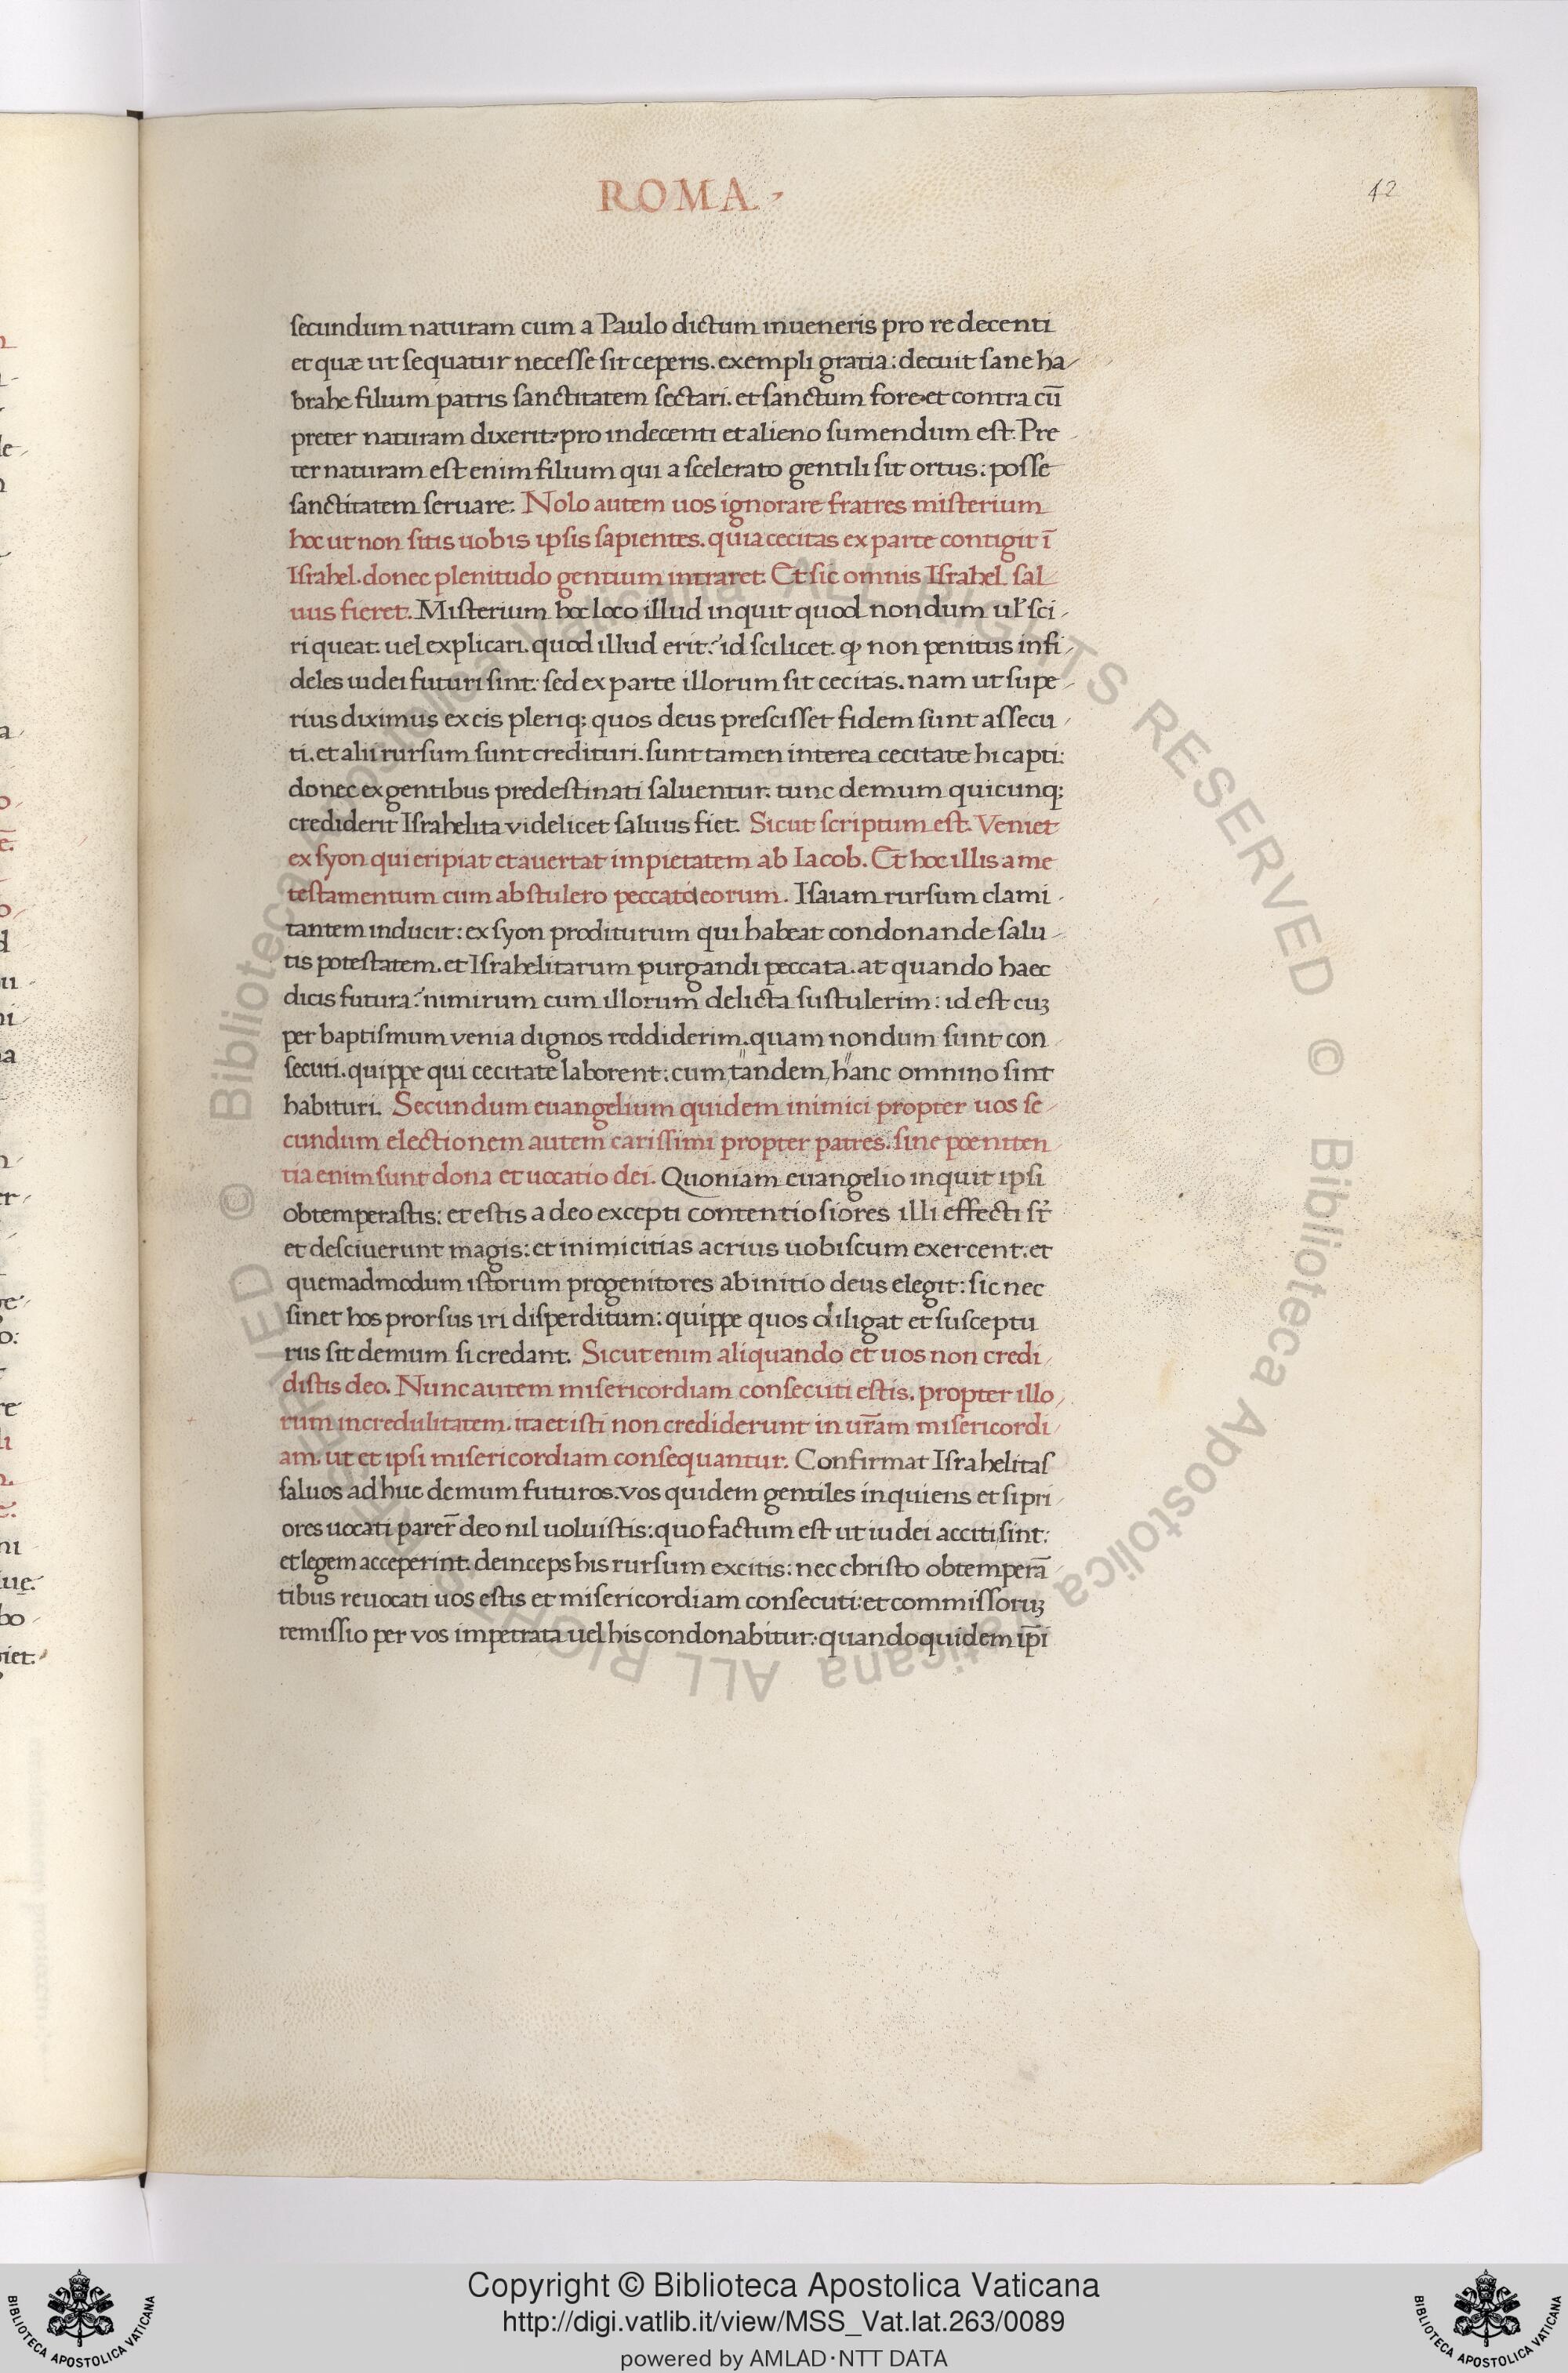 ROMA.
42
secundum naturam cum a Paulo dictum inueneris pro re decenti
et quæ ut sequatur necesse sit ceperis. exempli gratia: decuit sane ha
brahe filium patris sanctitatem sectari. et sanctum fore. et contra cū
preter naturam dixerit: pro indecenti et alieno sumendum est. Pre
ter naturam est enim filium qui a scelerato gentili sit ortus: posse
sanctitatem seruare: Nolo autem uos ignorare fratres misterium
hoc ut non sitis uobis ipsis sapientes. quia cecitas ex parte contigit ī
Israhel. donec plenitudo gentium intraret. Et sic omnis Israhel sal
uus fieret. Misterium hoc loco illud inquit quod nondum ul̓ sci
ri queat: uel explicari. quod illud erit? id scilicet. ꝙ non penitus infi
deles iudei futuri sint: sed ex parte illorum sit cecitas. nam ut supe
rius diximus ex eis pleriq; quos deus prescisset fidem sunt assecu
ti. et alii rursum sunt credituri. sunt tamen interea cecitate hi capti:
donec ex gentibus predestinati saluentur. tunc demum quicunq;
crediderit Israhelita videlicet saluus fiet. Sicut scriptum est. Veniet
ex syon qui eripiat et auertat impietatem ab Iacob. Et hoc illis a me
testamentum cum abstulero peccata eorum. Isaiam rursum clami
tantem inducit: ex syon proditurum qui habeat condonande salu
tis potestatem. et Israhelitarum purgandi peccata. at quando haec
dicis futura? nimirum cum illorum delicta sustulerim: id est cuꝫ
per baptismum venia dignos reddiderim. quam nondum sunt con
secuti. quippe qui cecitate laborent: cum tandem hanc omnino sint
habituri. Secundum euangelium quidem inimici propter uos se
cundum electionem autem carissimi propter patres. sine poeniten
tia enim sunt dona et uocatio dei. Quoniam euangelio inquit ipsi
obtemperastis: et estis a deo excepti contentiosiores illi effecti st̄
et desciuerunt magis: et inimicitias acrius uobiscum exercent. et
quemadmodum istorum progenitores ab initio deus elegit: sic nec
sinet hos prorsus iri disperditum: quippe quos diligat et susceptu
rus sit demum si credant. Sicut enim aliquando et uos non credi
distis deo. Nunc autem misericordiam consecuti estis. propter illo
rum incredulitatem. ita et isti non crediderunt in ur̄am misericordi
am. ut et ipsi misericordiam consequantur. Confirmat Israhelitas
saluos adhuc demum futuros. vos quidem gentiles inquiens et si pri
ores uocati parer̄ deo nil uoluistis: quo factum est ut iudei acciti sint:
et legem acceperint. deinceps his rursum excitis: nec christo obtemperā
tibus reuocati uos estis et misericordiam consecuti: et commissoruꝫ
remissio per vos impetrata uel his condonabitur: quandoquidem ip̄i
Copyright © Biblioteca Apostolica Vaticana
http://digi.vatlib.it/view/MSS_Vat.lat.263/0089
powered by AMLAD·NTT DATA